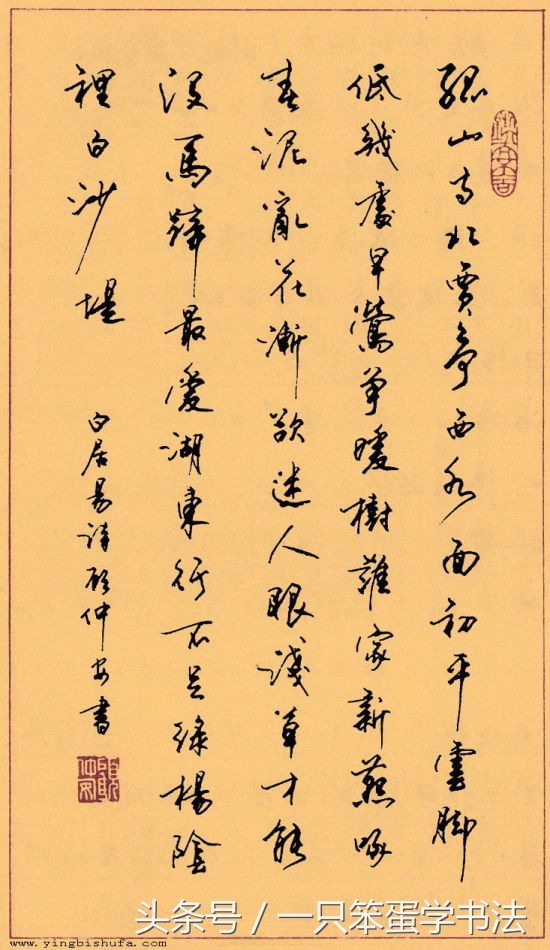 孤山寺北賈亭西水面初平雲腳
低幾處早鶯爭暖樹誰家新燕啄
春泥亂花漸欲迷人眼淺草才能
沒馬蹄最愛湖東行不足綠楊陰
裡白沙堤
白居易詩顧仲安書
頭条号 / 一只笨蛋学书法
www.yingbishufa.com